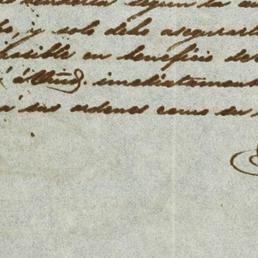 segun la
y solo debo asegurarl
posible en beneficio de
á Ud. imediatament
á sus ordenes como su